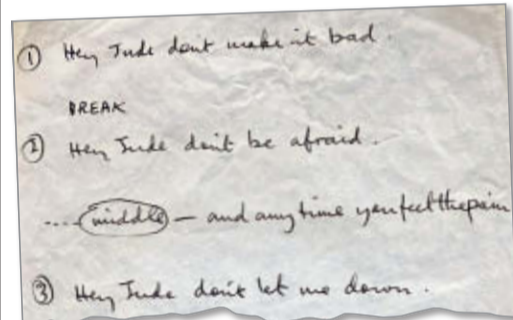 ① Hey Jude dont make it bad.
BREAK
② Hey Jude don't be afraid.
.... middle — and anytime you feel the pain
③ Hey Jude don't let me down.